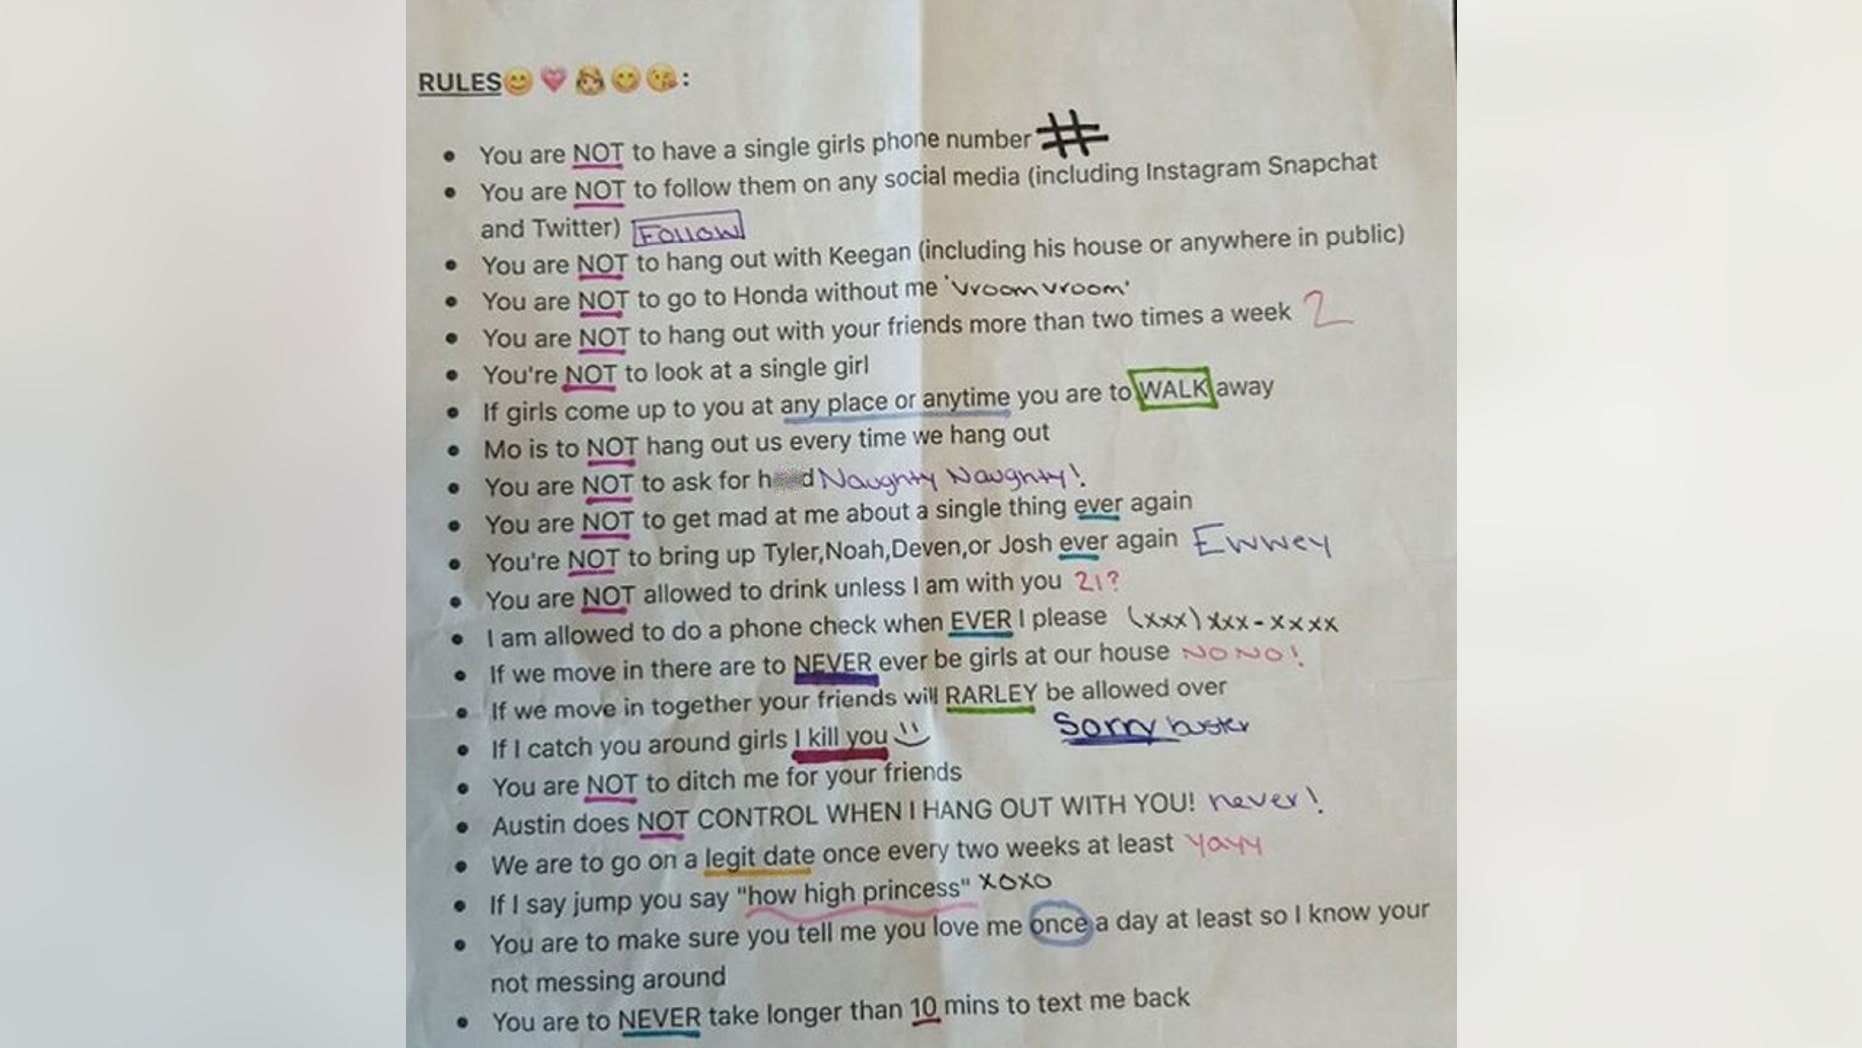 RULES😊💗👸😋😘:
You are NOT to have a single girls phone number #
You are NOT to follow them on any social media (including Instagram Snapchat
and Twitter) Follow
You are NOT to hang out with Keegan (including his house or anywhere in public)
You are NOT to go to Honda without me 'vroom vroom'
You are NOT to hang out with your friends more than two times a week 2
You're NOT to look at a single girl
If girls come up to you at any place or anytime you are to WALK away
Mo is to NOT hang out us every time we hang out
You are NOT to ask for h d Naughty Naughty!
You are NOT to get mad at me about a single thing ever again
You're NOT to bring up Tyler,Noah,Deven,or Josh ever again Ewwey
You are NOT allowed to drink unless I am with you 21?
I am allowed to do a phone check when EVER I please (xxx) xxx-xxxx
If we move in there are to NEVER ever be girls at our house NO NO!
If we move in together your friends will RARLEY be allowed over
Sorry buster
If I catch you around girls I kill you
You are NOT to ditch me for your friends
Austin does NOT CONTROL WHEN I HANG OUT WITH YOU! never!
We are to go on a legit date once every two weeks at least Yayy
If I say jump you say "how high princess" xoxo
You are to make sure you tell me you love me once a day at least so I know your
not messing around
You are to NEVER take longer than 10 mins to text me back